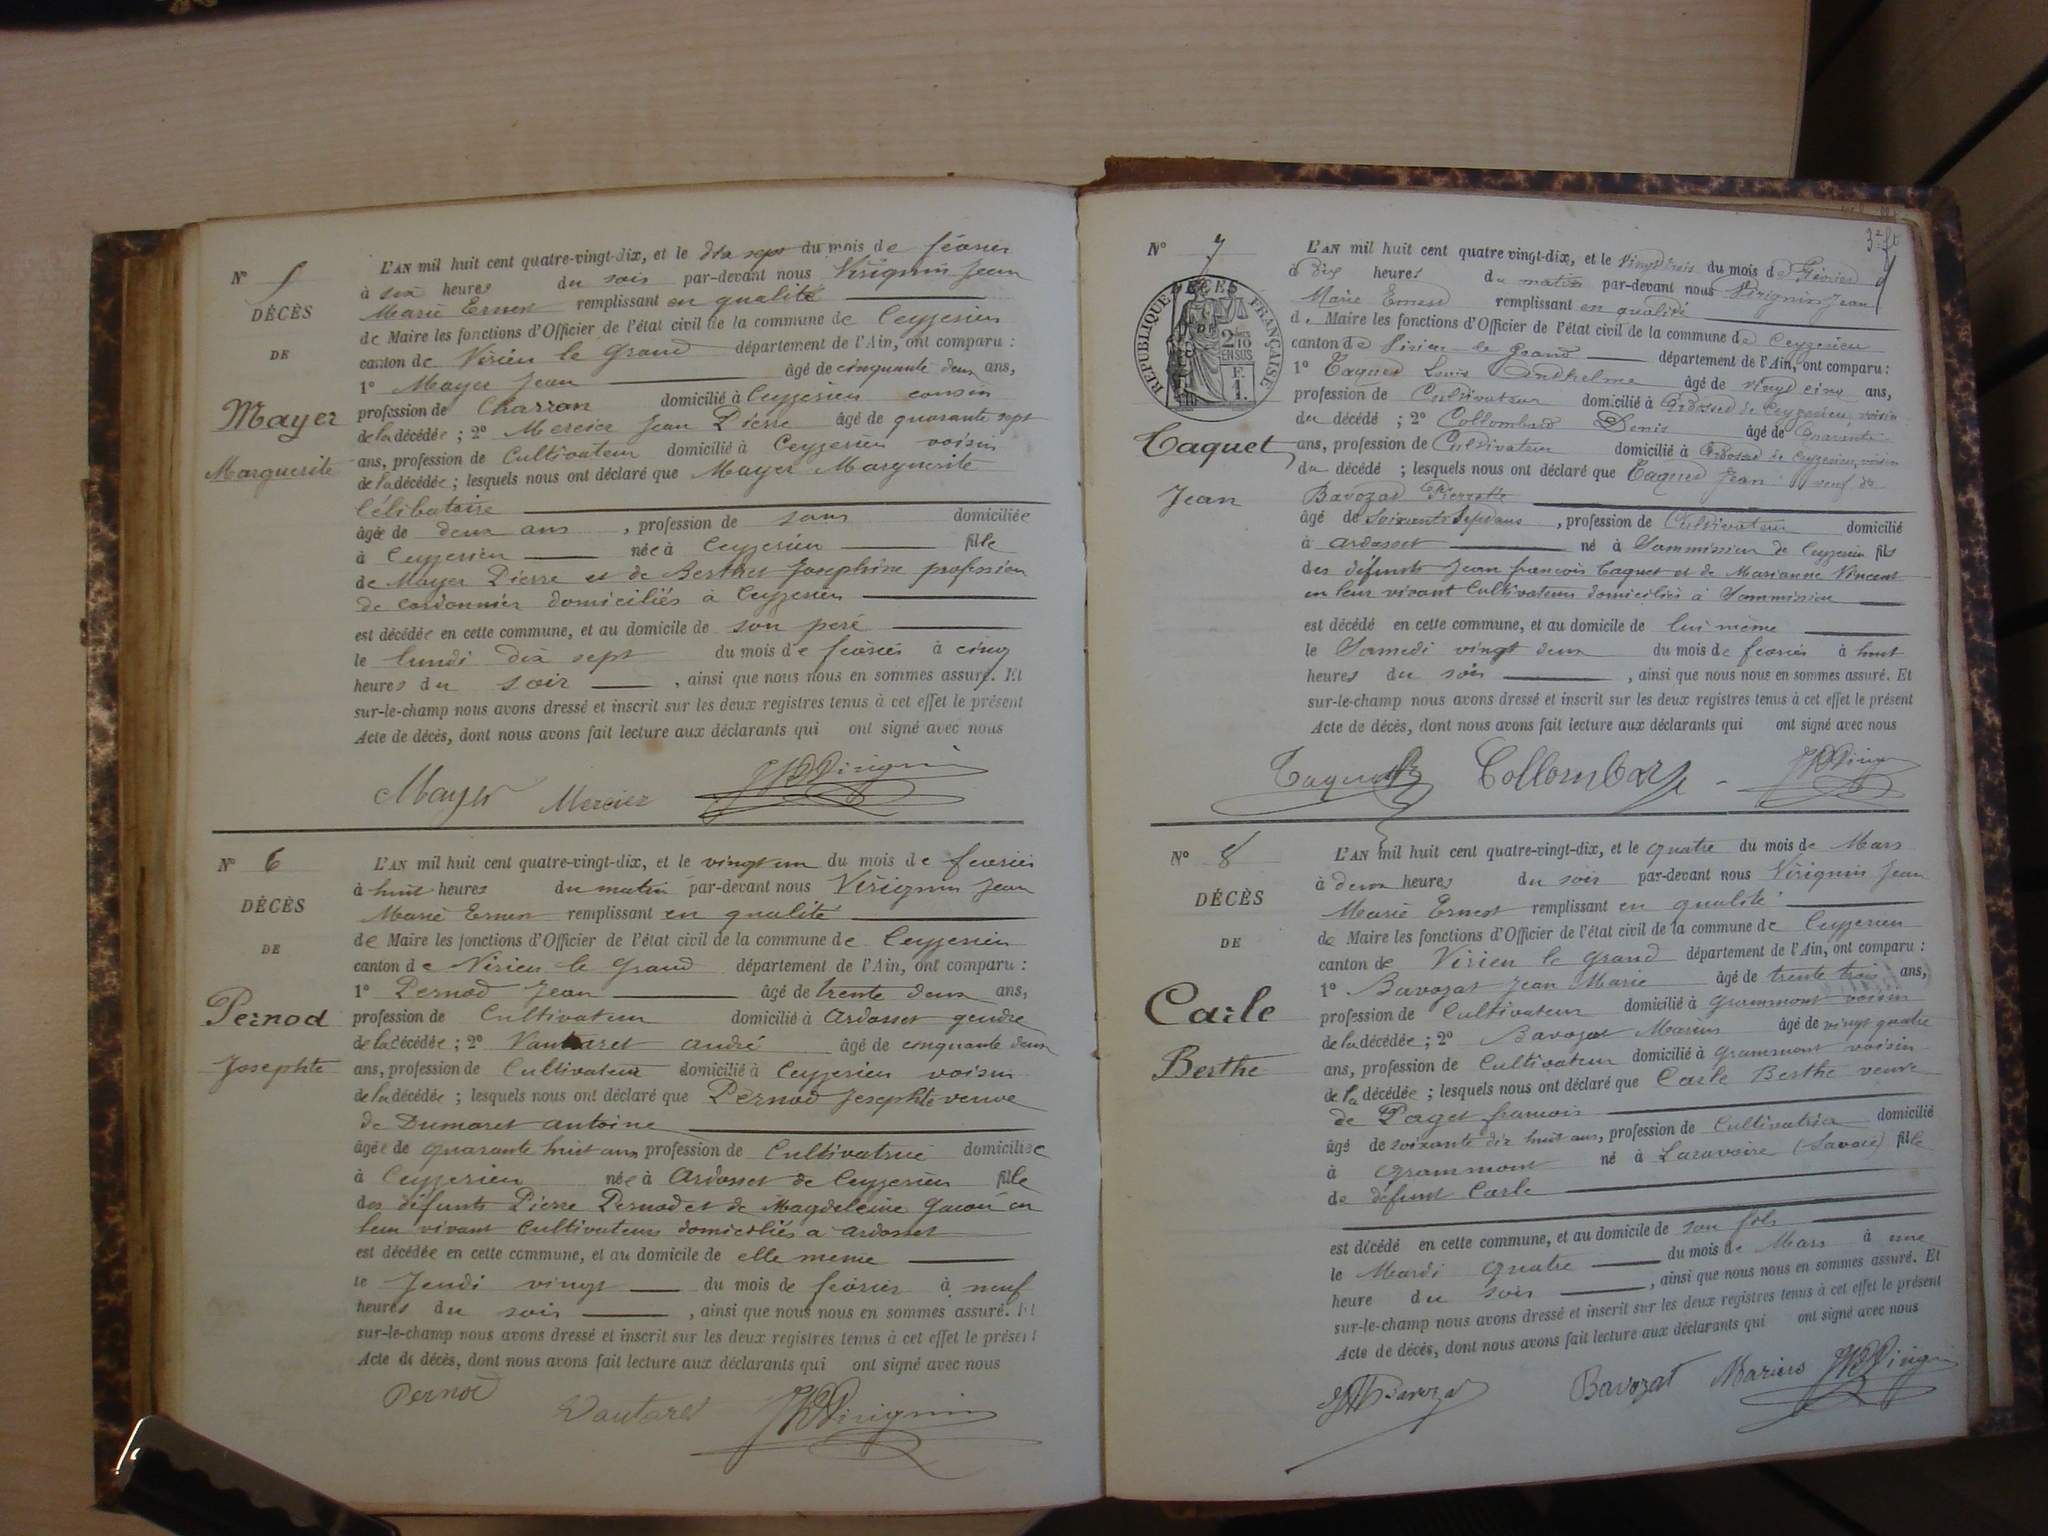 N° 5
DÉCÈS
DE
Mayer
Marguerite
L'AN mil huit cent quatre-vingt-dix, et le dix sept du mois de février
à six heures du soir par-devant nous Virignin Jean
Marie Ernest remplissant en qualité
de Maire les fonctions d'Officier de l'état civil de la commune de Ceyzerieu
canton de Virieu le Grand département de l'Ain, ont comparu :
1° Mayer Jean âgé de cinquante deux ans,
profession de Charron domicilié à Ceyzerieu cousin
de la décédée ; 2° Mercier Jean Pierre âgé de quarante sept
ans, profession de Cultivateur domicilié à Ceyzerieu voisin
de la décédée ; lesquels nous ont déclaré que Mayer Marguerite
Célibataire
âgée de deux ans , profession de sans domiciliée
à Ceyzerieu née à Ceyzerieu fille
de Mayer Pierre et de Berthet Josephine profession
de cordonnier domiciliés à Ceyzerieu
est décédée en cette commune, et au domicile de son père
le lundi dix sept du mois de février à cinq
heures du soir , ainsi que nous nous en sommes assuré. Et
sur-le-champ nous avons dressé et inscrit sur les deux registres tenus à cet effet le présent
Acte de décès, dont nous avons fait lecture aux déclarants qui ont signé avec nous
Mayer Mercier Virignin
N° 6
DÉCÈS
DE
Pernod
Josephte
L'AN mil huit cent quatre-vingt-dix, et le vingt un du mois de février
à huit heures du matin par-devant nous Virignin Jean
Marie Ernest remplissant en qualité
de Maire les fonctions d'Officier de l'état civil de la commune de Ceyzerieu
canton de Virieu le Grand département de l'Ain, ont comparu :
1° Pernod Jean âgé de trente deux ans,
profession de Cultivateur domicilié à Ardosset gendre
de la décédée ; 2° Vautaret André âgé de cinquante deux
ans, profession de Cultivateur domicilié à Ceyzerieu voisin
de la décédée ; lesquels nous ont déclaré que Pernod Josephte veuve
de Dumaret Antoine
âgée de quarante huit ans profession de Cultivatrice domiciliée
à Ceyzerieu née à Ardosset de Ceyzerieu fille
des défunts Pierre Pernod et de Magdeleine en
leur vivant Cultivateurs domiciliés à Ardosset
est décédée en cette commune, et au domicile de elle meme
le Jeudi vingt du mois de février à neuf
heures du soir , ainsi que nous nous en sommes assuré. Et
sur-le-champ nous avons dressé et inscrit sur les deux registres tenus à cet effet le présent
Acte de décès, dont nous avons fait lecture aux déclarants qui ont signé avec nous
Pernod Vautaret Virignin
3e ft
N° 7
DÉCÈS
DE
RÉPUBLIQUE FRANÇAISE
2/10 EN SUS
F. 1.
Caquet
Jean
L'AN mil huit cent quatre-vingt-dix, et le vingt trois du mois de Février
à dix heures du matin par-devant nous Virignin Jean
Marie Ernest remplissant en qualité
de Maire les fonctions d'Officier de l'état civil de la commune de Ceyzerieu
canton de Virieu le Grand département de l'Ain, ont comparu :
1° Caquet Louis Anthelme âgé de vingt cinq ans,
profession de Cultivateur domicilié à Ardosset de Ceyzerieu, voisin
du décédé ; 2° Collombard Denis âgé de Quarante
ans, profession de Cultivateur domicilié à Ardosset de Ceyzerieu, voisin
du décédé ; lesquels nous ont déclaré que Caquet Jean veuf de
Bavozat Pierrette
âgé de Soixante Sept ans , profession de Cultivateur domicilié
à Ardosset né à Sammission de Ceyzerieu fils
des défunts Jean françois Caquet et de Marianne Vincent
en leur vivant Cultivateurs domiciliés à Sammission
est décédé en cette commune, et au domicile de lui même
le Samedi vingt deux du mois de février à huit
heures du soir , ainsi que nous nous en sommes assuré. Et
sur-le-champ nous avons dressé et inscrit sur les deux registres tenus à cet effet le présent
Acte de décès, dont nous avons fait lecture aux déclarants qui ont signé avec nous
Caquet Collombard Virignin
N° 8
DÉCÈS
DE
Carle
Berthe
L'AN mil huit cent quatre-vingt-dix, et le quatre du mois de Mars
à deux heures du soir par-devant nous Virignin Jean
Marie Ernest remplissant en qualité
de Maire les fonctions d'Officier de l'état civil de la commune de Ceyzerieu
canton de Virieu le Grand département de l'Ain, ont comparu :
1° Bavozat Jean Marie âgé de trente trois ans,
profession de Cultivateur domicilié à Grammont voisin
de la décédée ; 2° Bavozat Marius âgé de vingt quatre
ans, profession de Cultivateur domicilié à Grammont voisin
de la décédée ; lesquels nous ont déclaré que Carle Berthe veuve
de Paget francois
âgé de soixante dix huit ans, profession de Cultivatrice domicilié
à Grammont né à Laravoire (Savoie) fille
de défunt Carle
est décédé en cette commune, et au domicile de son fils
le Mardi quatre du mois de Mars à une
heure du soir , ainsi que nous nous en sommes assuré. Et
sur-le-champ nous avons dressé et inscrit sur les deux registres tenus à cet effet le présent
Acte de décès, dont nous avons fait lecture aux déclarants qui ont signé avec nous
Bavozat Bavozat Marius Virignin